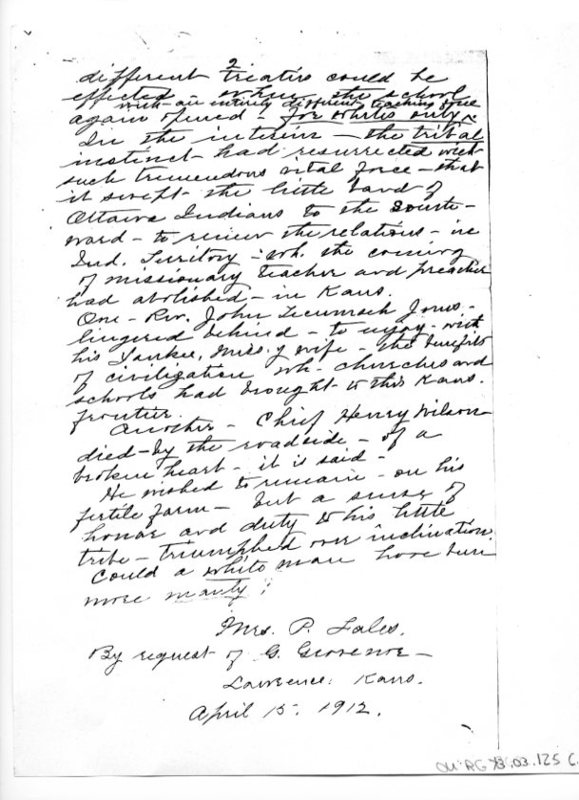 2
different treaties could be
effected - when the school
with an entirely different teaching force
again opened - for whites only.
In the interim - the tribal
instinct - had resurrected with
such tremendous vital force - that
it swept the little band of
Ottawa Indians to the South-
ward - to renew the relations - in
Ind. Territory - wh. the coming
of missionary teacher and preacher
had abolished - in Kans.
One - Rev. John Tecumseh Jones -
lingered behind - to enjoy - with
his Yankee, Miss'y wife - the benefits
of civilization wh- churches and
schools had brought to this Kans.
frontier.
Another - Chief Henry Wilson
died - by the roadside - of a
broken heart - it is said -
He wished to remain - on his
fertile farm - but a sense of
honor and duty to his little
tribe - triumphed over inclination.
Could a white man have been
more manly?
Mrs. P. Fales.
By request of G. Grosvenor -
Lawrence. Kans.
April 15. 1912.
OU RG 78.03.125 C.